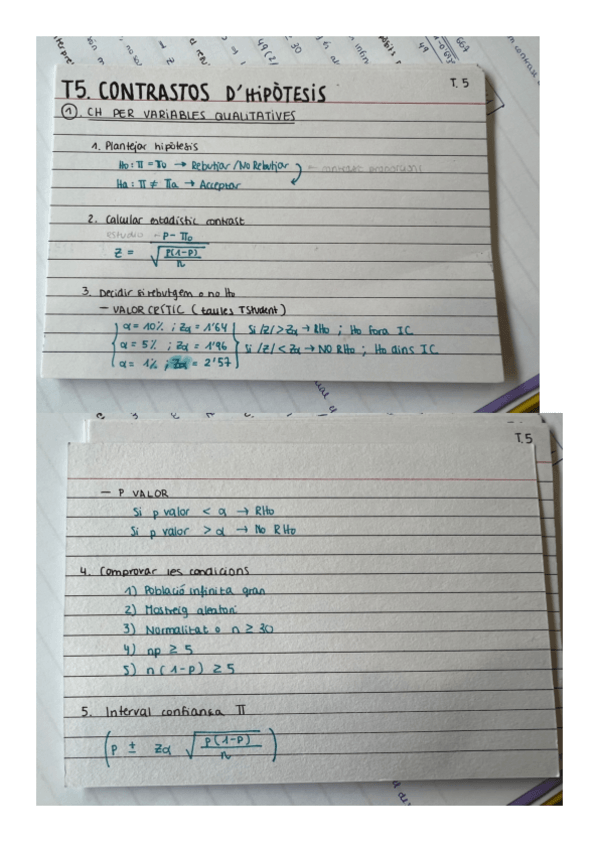 T. 5
T5. CONTRASTOS D'HIPÒTESIS
1. CH PER VARIABLES QUALITATIVES
1. Plantejar hipòtesis
Ho: π = πo → Rebutjar / No Rebutjar
Ha: π ≠ πa → Acceptar
2. Calcular estadístic contrast
estudio - P - πo
Z = √ P(1-P) / n
3. Decidir si rebutgem o no Ho
- VALOR CRÍTIC (taules TStudent)
α = 10% ; Zα = 1'64 Si /Z/ > Zα → RHo ; Ho fora IC
α = 5% ; Zα = 1'96 Si /Z/ < Zα → NO RHo ; Ho dins IC
α = 1% ; Zα = 2'57
T.5
- P VALOR
Si p valor < α → RHo
Si p valor > α → No RHo
4. Comprovar les condicions
1) Població infinita gran
2) Mostreig aleatori
3) Normalitat o n ≥ 30
4) np ≥ 5
5) n(1-p) ≥ 5
5. Interval confiansa π
(p ± Zα √ P(1-P) / n )